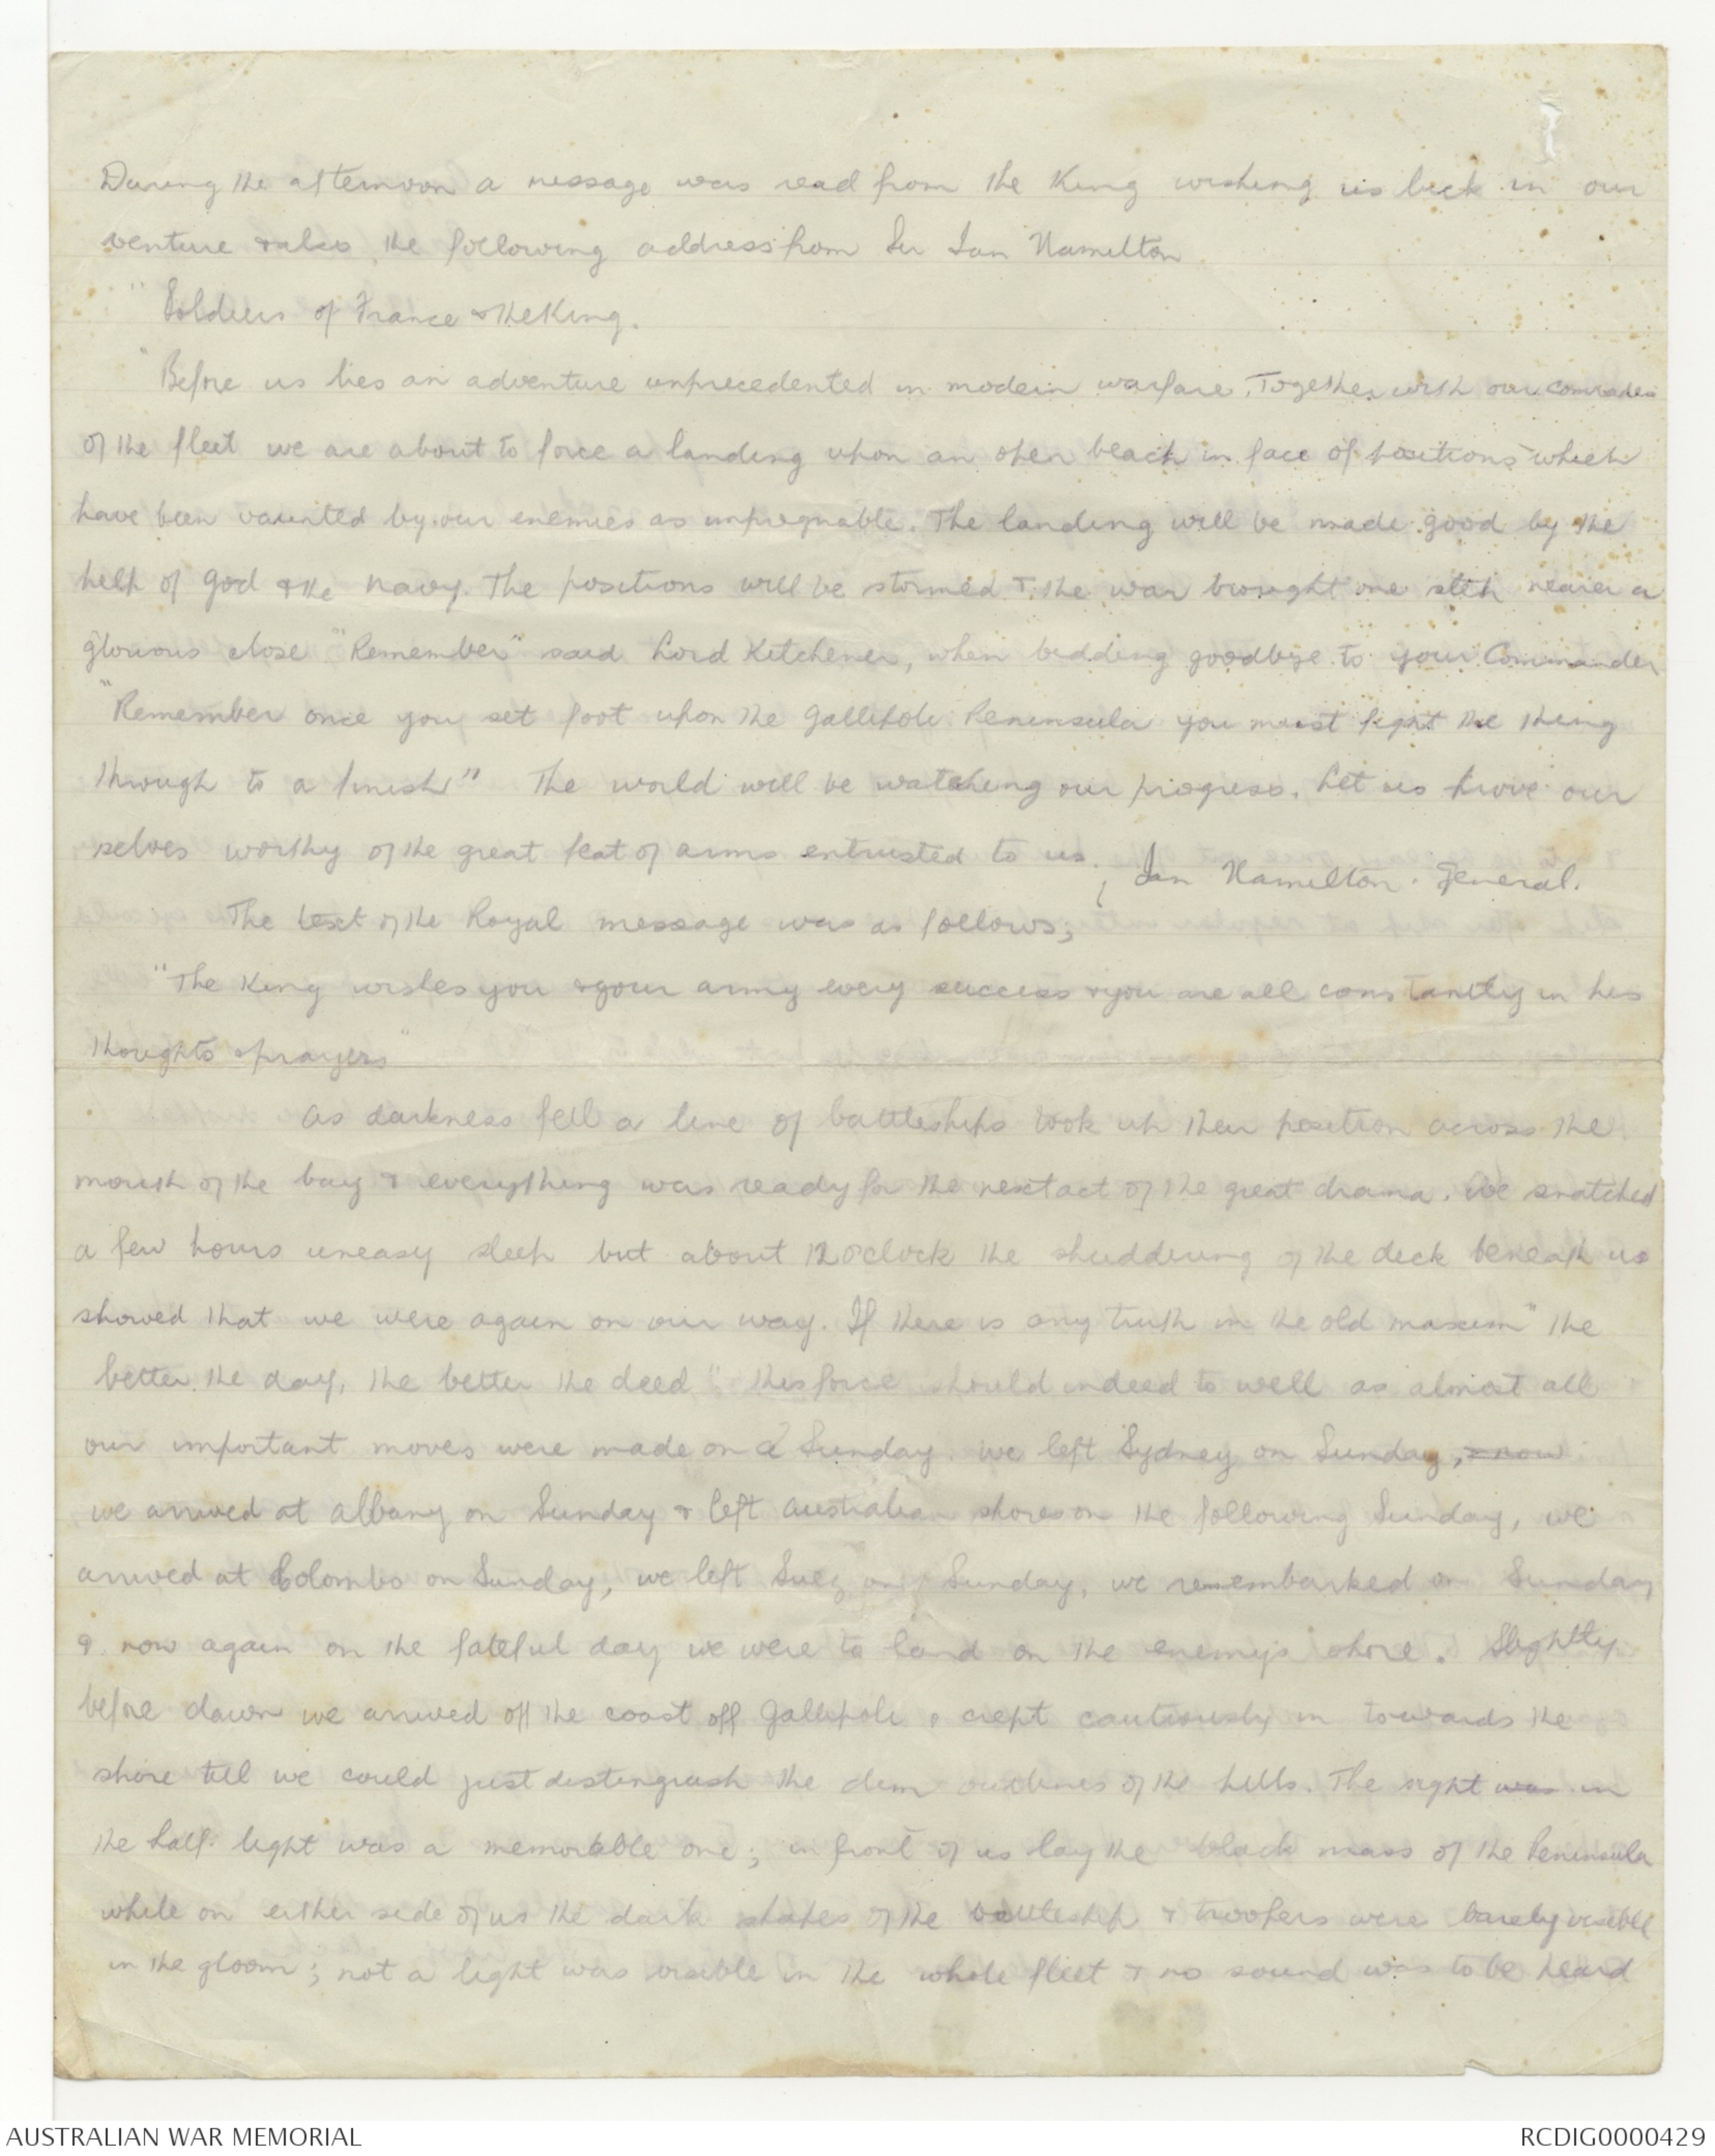 During the afternoon a message was read from the King wishing us luck in our
venture & also the following address from Sir Ian Hamilton
" Soldiers of France & the King.
"Before us lies an adventure unprecedented in modern warfare. Together with our comrades
of the fleet we are about to force a landing upon an open beach in face of positions which
have been vaunted by our enemies as impregnable. The landing will be made good by the
help of God & the Navy. The positions will be stormed & the war brought one step nearer a
glorious close "Remember" said Lord Kitchener, when bidding goodbye to your Commander
"Remember once you set foot upon the Gallipoli Peninsula you must fight the thing
through to a finish" The world will be watching our progress. Let us prove our
selves worthy of the great feat of arms entrusted to us. ; Ian Hamilton. General.
The text of the Royal message was as follows;
"The King wishes you & your army every success & you are all constantly in his
thoughts & prayers"
As darkness fell a line of battleships took up their position across the
mouth of the bay & everything was ready for the next act of the great drama. We snatched
a few hours uneasy sleep but about 12 o'clock the shuddering of the deck beneath us
showed that we were again on our way. If there is any truth in the old maxim "the
better the day, the better the deed" this force should indeed to well as almost all
our important moves were made on a Sunday. We left Sydney on Sunday, & now
we arrived at Albany on Sunday & left Australian shores on the following Sunday, we
arrived at Colombo on Sunday, we left Suez on Sunday, we reembarked on Sunday
& now again on the fateful day we were to land on the enemy's shore. Slightly
before dawn we arrived off the coast off Gallipoli & crept cautiously in towards the
shore till we could just distinguish the dim outlines of the hills. The sight was in
the half light was a memorable one; in front of us lay the black mass of the Peninsula
while on either side of us the dark shapes of the battleship & troopers were barely visible
in the gloom; not a light was visible in the whole fleet & no sound was to be heard
AUSTRALIAN WAR MEMORIAL
RCDIG0000429